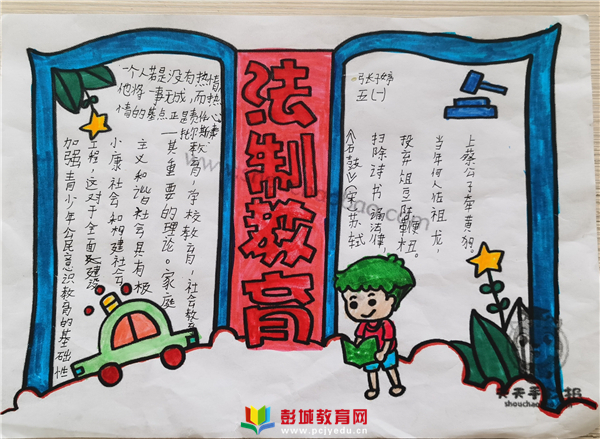 法制教育
一个人若是没有热情
他将一事无成，而热情
的基点正是责任心
是托尔斯泰
加强青少年公民意识教育的基础性
工程，这对于全面建设
小康社会和构建社会
主义和谐社会具有极
其重要的理论。家庭
教育，学校教育，社会教育
张子婷
五(一)
上蔡公子牵黄狗。
当年何人佐祖龙，
投弃俎豆陈鞭杻。
扫除诗书诵法律，
《石鼓》（宋）苏轼
天天手抄报
shouchaobao.com
彭城教育网
www.pcjyedu.cn